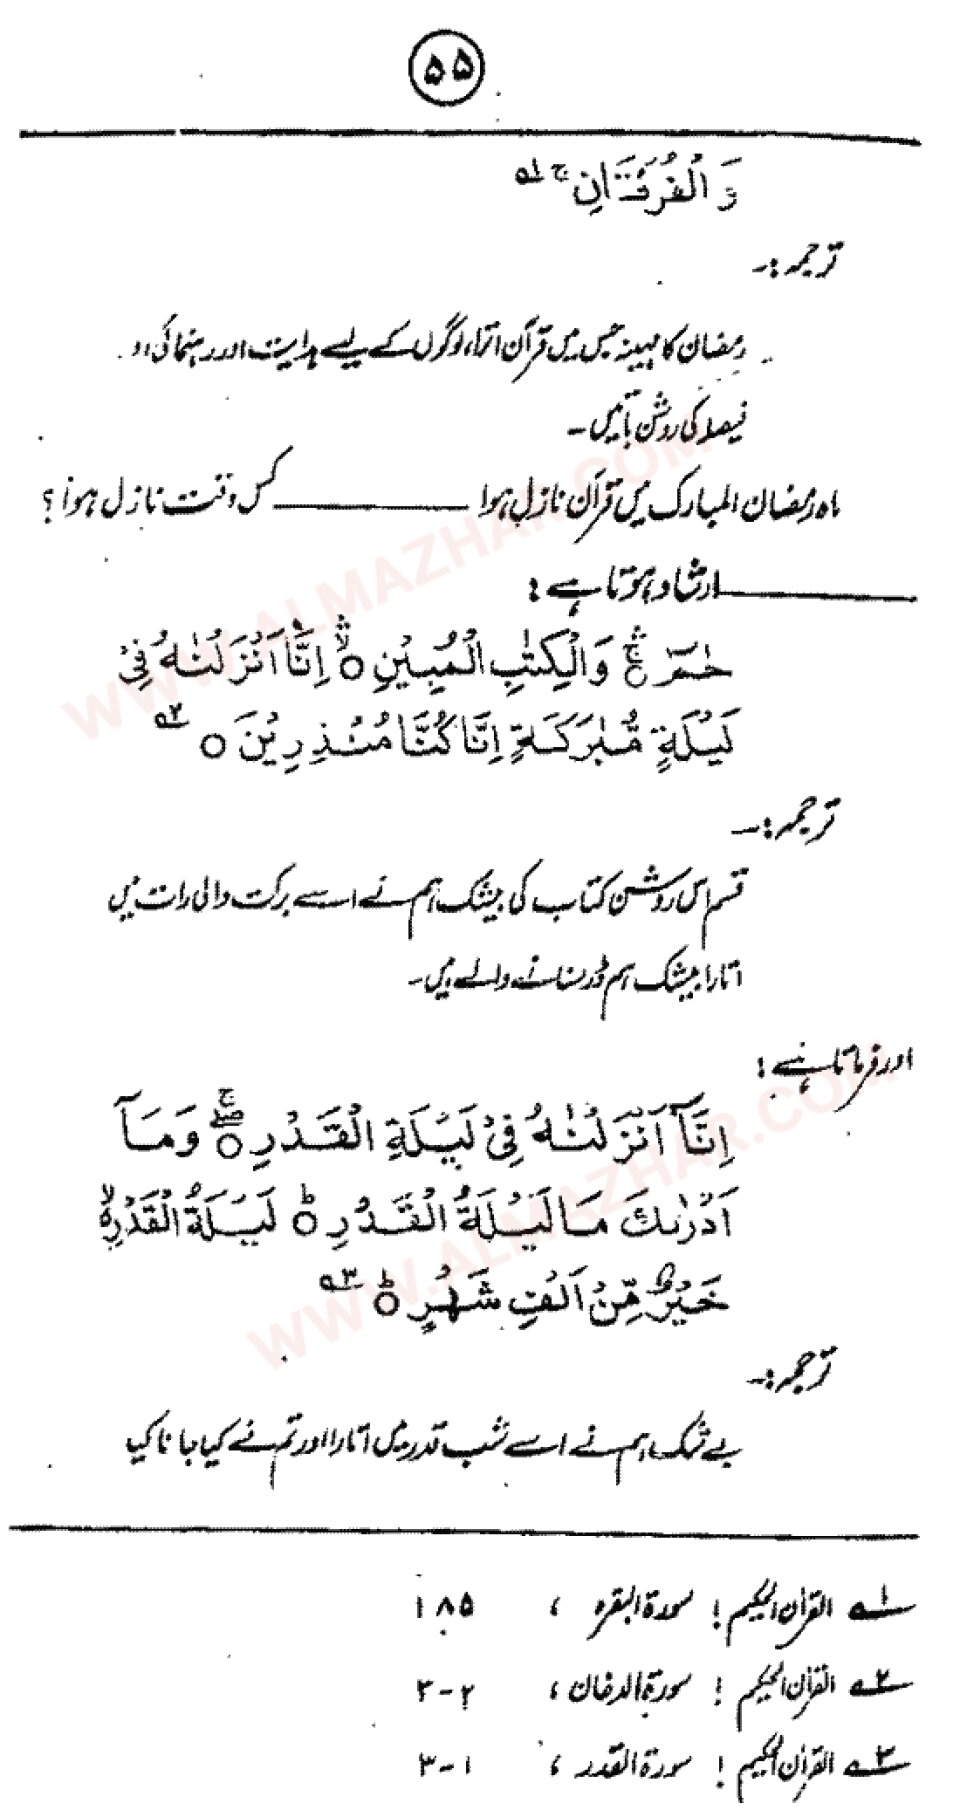 ۵۵
وَالْفُرْقَانِ ج ۱؎
ترجمہ:۔
رمضان کا مہینہ جس میں قرآن اترا، لوگوں کے لیے ہدایت اور رہنمائی اور
فیصلہ کی روشن باتیں۔
ماہ رمضان المبارک میں قرآن نازل ہوا ——— کس وقت نازل ہوا؟
——— ارشاد ہوتا ہے:
حٰمٓ ۚۛ وَالْكِتٰبِ الْمُبِيْنِ ۙۛ اِنَّآ اَنْزَلْنٰهُ فِيْ
لَيْلَةٍ مُّبٰرَكَةٍ اِنَّا كُنَّا مُنْذِرِيْنَ ○ ۲؎
ترجمہ:۔
قسم اس روشن کتاب کی بیشک ہم نے اسے برکت والی رات میں
اتارا بیشک ہم ڈر سنانے والے ہیں۔
اور فرماتا ہے:
اِنَّآ اَنْزَلْنٰهُ فِيْ لَيْلَةِ الْقَدْرِ ۚۖ وَمَآ
اَدْرٰىكَ مَا لَيْلَةُ الْقَدْرِ ؕ لَيْلَةُ الْقَدْرِ ۙ
خَيْرٌ مِّنْ اَلْفِ شَهْرٍ ؕ ۳؎
ترجمہ:۔
بے شک ہم نے اسے شب قدر میں اتارا اور تم نے کیا جانا کیا
۱؎ القرآن الحکیم! سورۃ البقرہ، ۱۸۵
۲؎ القرآن الحکیم! سورۃ الدخان، ۲-۳
۳؎ القرآن الحکیم! سورۃ القدر، ۱-۳
WWW.ALMAZHAR.COM
WWW.ALMAZHAR.COM